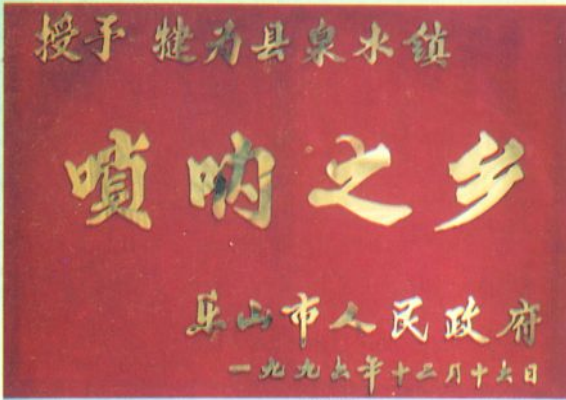 授予 犍为县泉水镇
唢呐之乡
乐山市人民政府
一九九六年十二月十六日